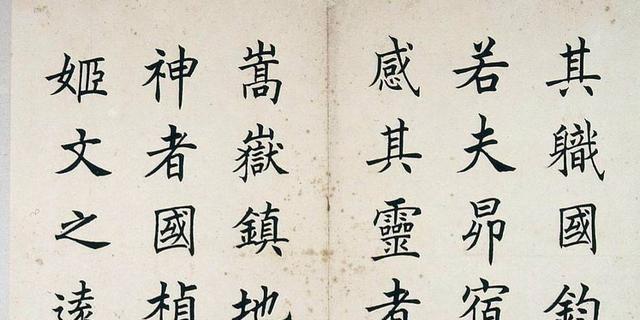 其軄國鈞
若夫昴宿
感其靈者
嵩嶽鎮地
神者國楨
姬文之遠